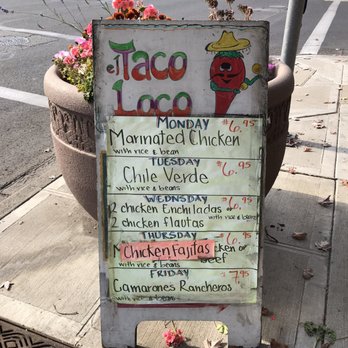 el Taco
Loco
MONDAY $6.95
Marinated Chicken
with rice & bean
TUESDAY $6.95
Chile Verde
with rice & beans
WEDNSDAY $6.95
2 chicken Enchiladas or
2 chicken flautas with rice & beans
THURSDAY $6.95
Chicken Fajitas cken or
with rice & beans beef
FRIDAY $7.95
Camarones Rancheros
with rice & beans